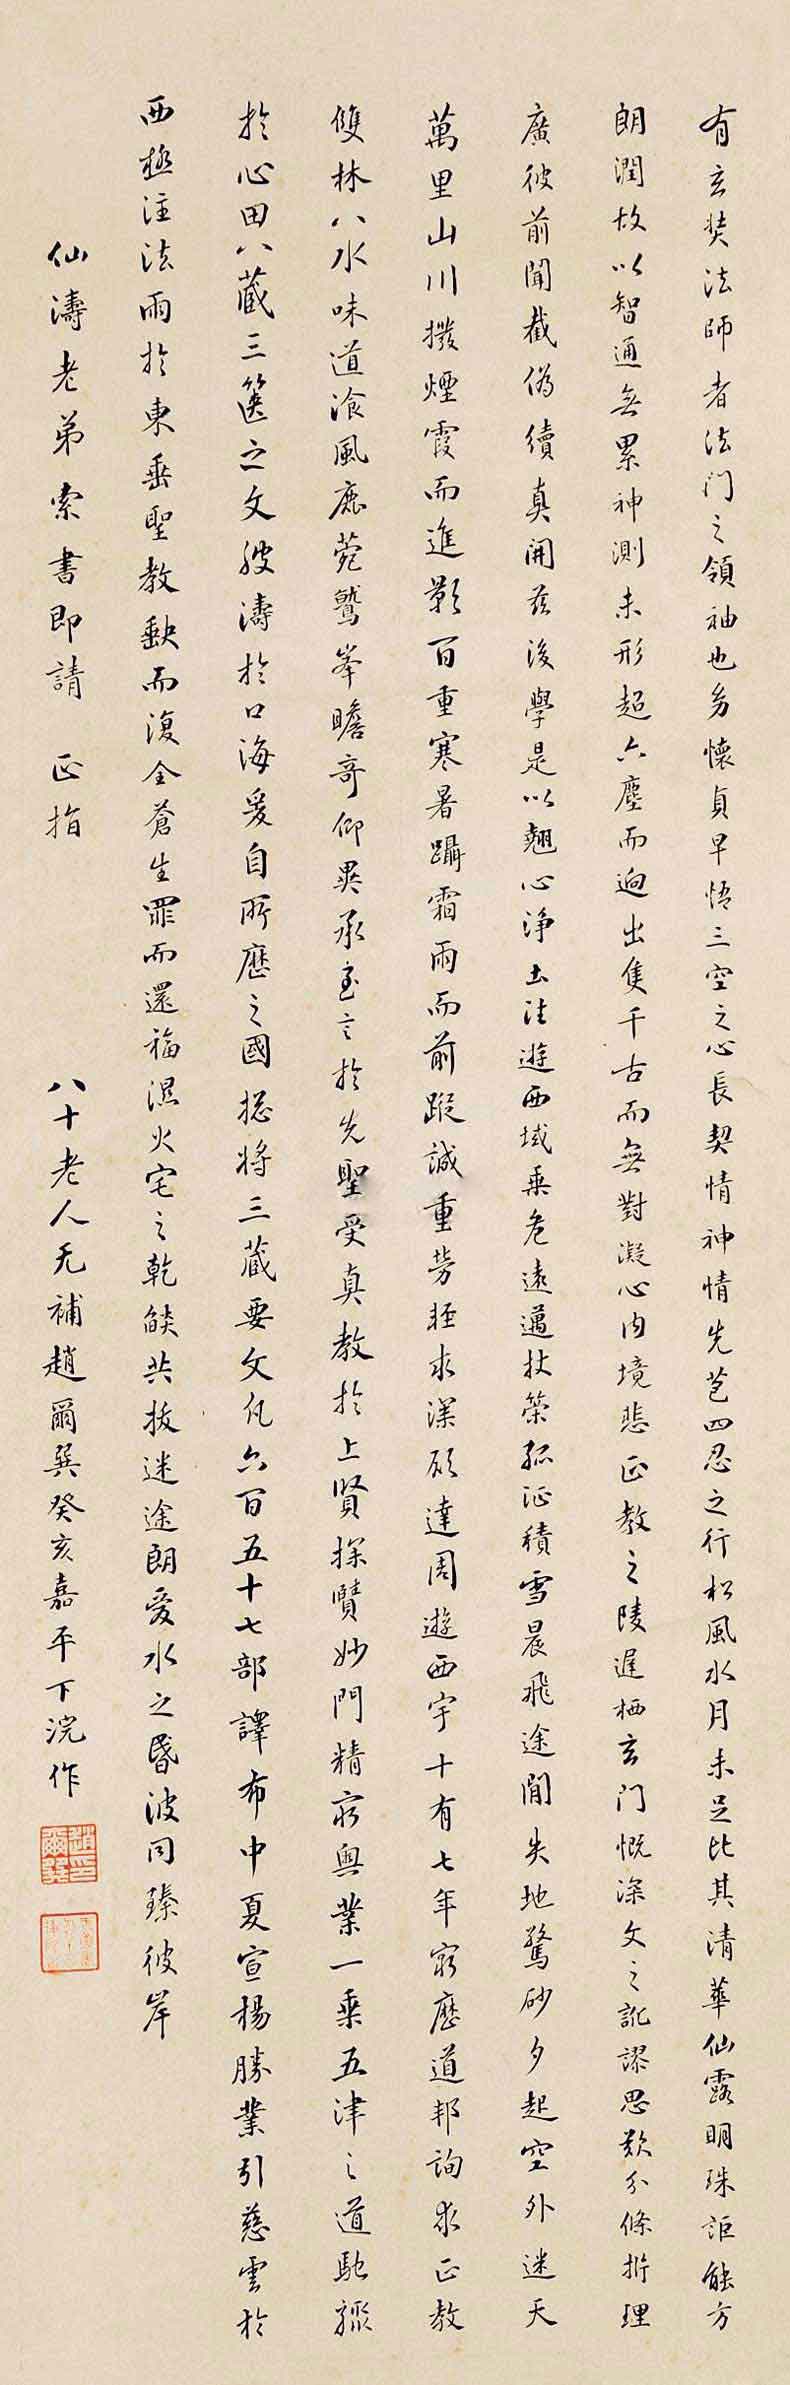 有玄奘法師者法門之領袖也幼懷貞早悟三空之心長契情神情先苞四忍之行松風水月未足比其清華仙露明珠詎能方
朗潤故以智通無累神測未形超六塵而迥出隻千古而無對凝心內境悲正教之陵遲栖玄門慨深文之訛謬思欲分條析理
廣彼前聞截偽續真開茲後學是以翹心淨土往遊西域乘危遠邁杖策孤征積雪晨飛途間失地驚砂夕起空外迷天
萬里山川撥煙霞而進影百重寒暑躡霜雨而前蹤誠重勞輕求深願達周遊西宇十有七年窮歷道邦詢求正教
雙林八水味道飡風鹿菀鷲峯瞻奇仰異承至言於先聖受真教於上賢探賾妙門精窮奧業一乘五津之道馳驟
於心田八藏三篋之文波濤於口海爰自所歷之國揔將三藏要文凡六百五十七部譯布中夏宣楊勝業引慈雲於
西極注法雨於東垂聖教缺而復全蒼生罪而還福濕火宅之乾燄共拔迷途朗愛水之昏波同臻彼岸
仙濤老弟索書即請 正指
八十老人无補趙爾巽癸亥嘉平下浣作
趙爾巽印